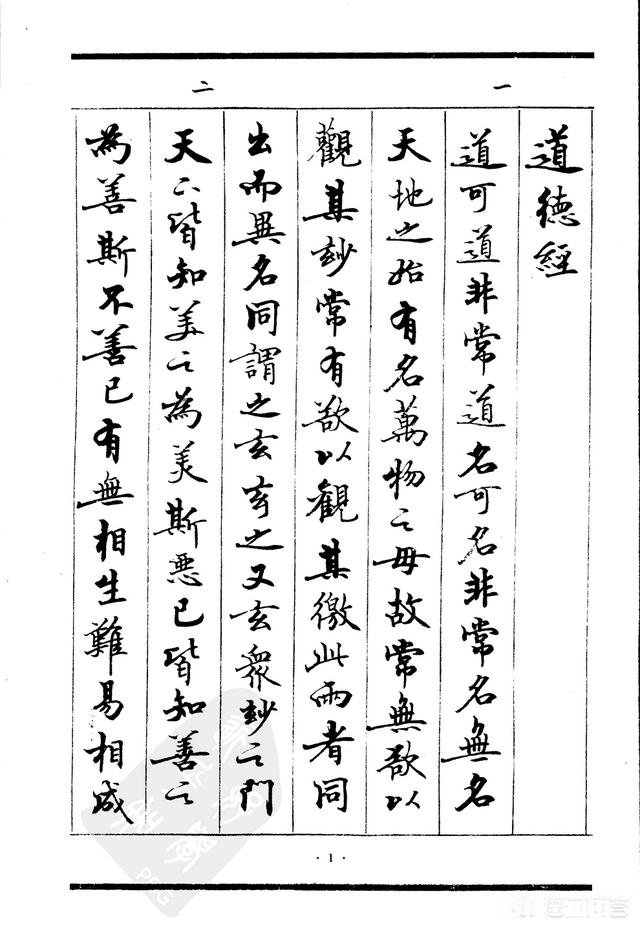 一
道德經
道可道非常道名可名非常名無名
天地之始有名萬物之母故常無欲以
觀其玅常有欲以觀其徼此兩者同
二
出而異名同謂之玄玄之又玄衆玅之門
天下皆知美之為美斯惡已皆知善之
為善斯不善已有無相生難易相成
· 1 ·
PDG
悟空问答